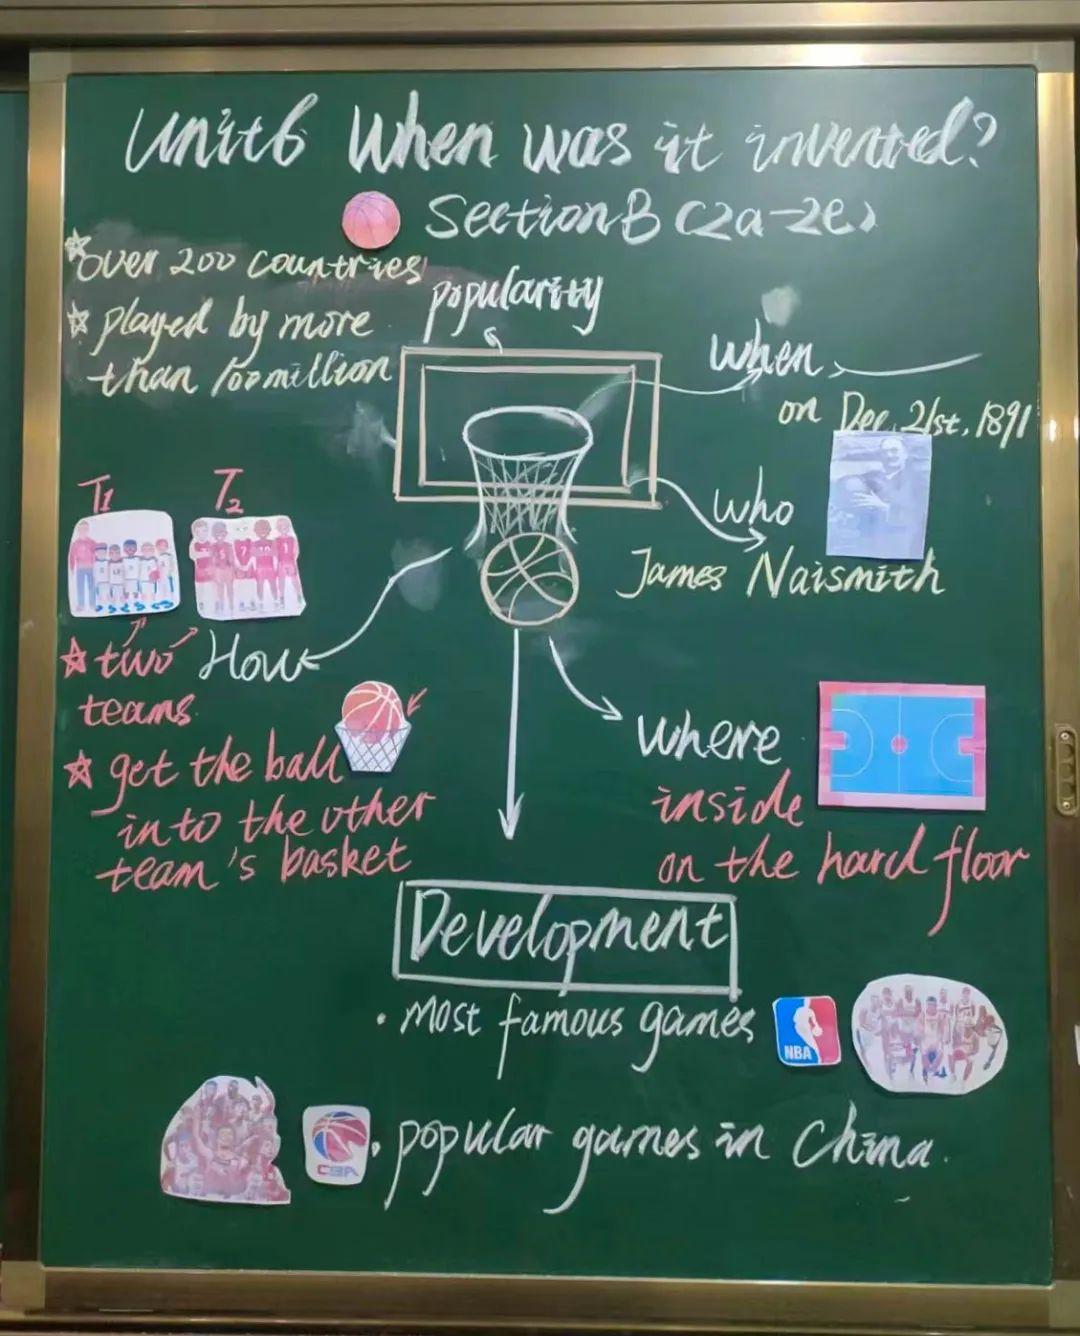 Unit6 When was it invented?
Section B (2a-2e)
☆over 200 countries
☆ played by more
than 100 million
popularity
when
on Dec. 21st, 1891
who
James Naismith
T1
T2
☆ two
teams
How
☆ get the ball
into the other
team's basket
where
inside
on the hard floor
Development
· most famous games
NBA
CBA
· popular games in China.